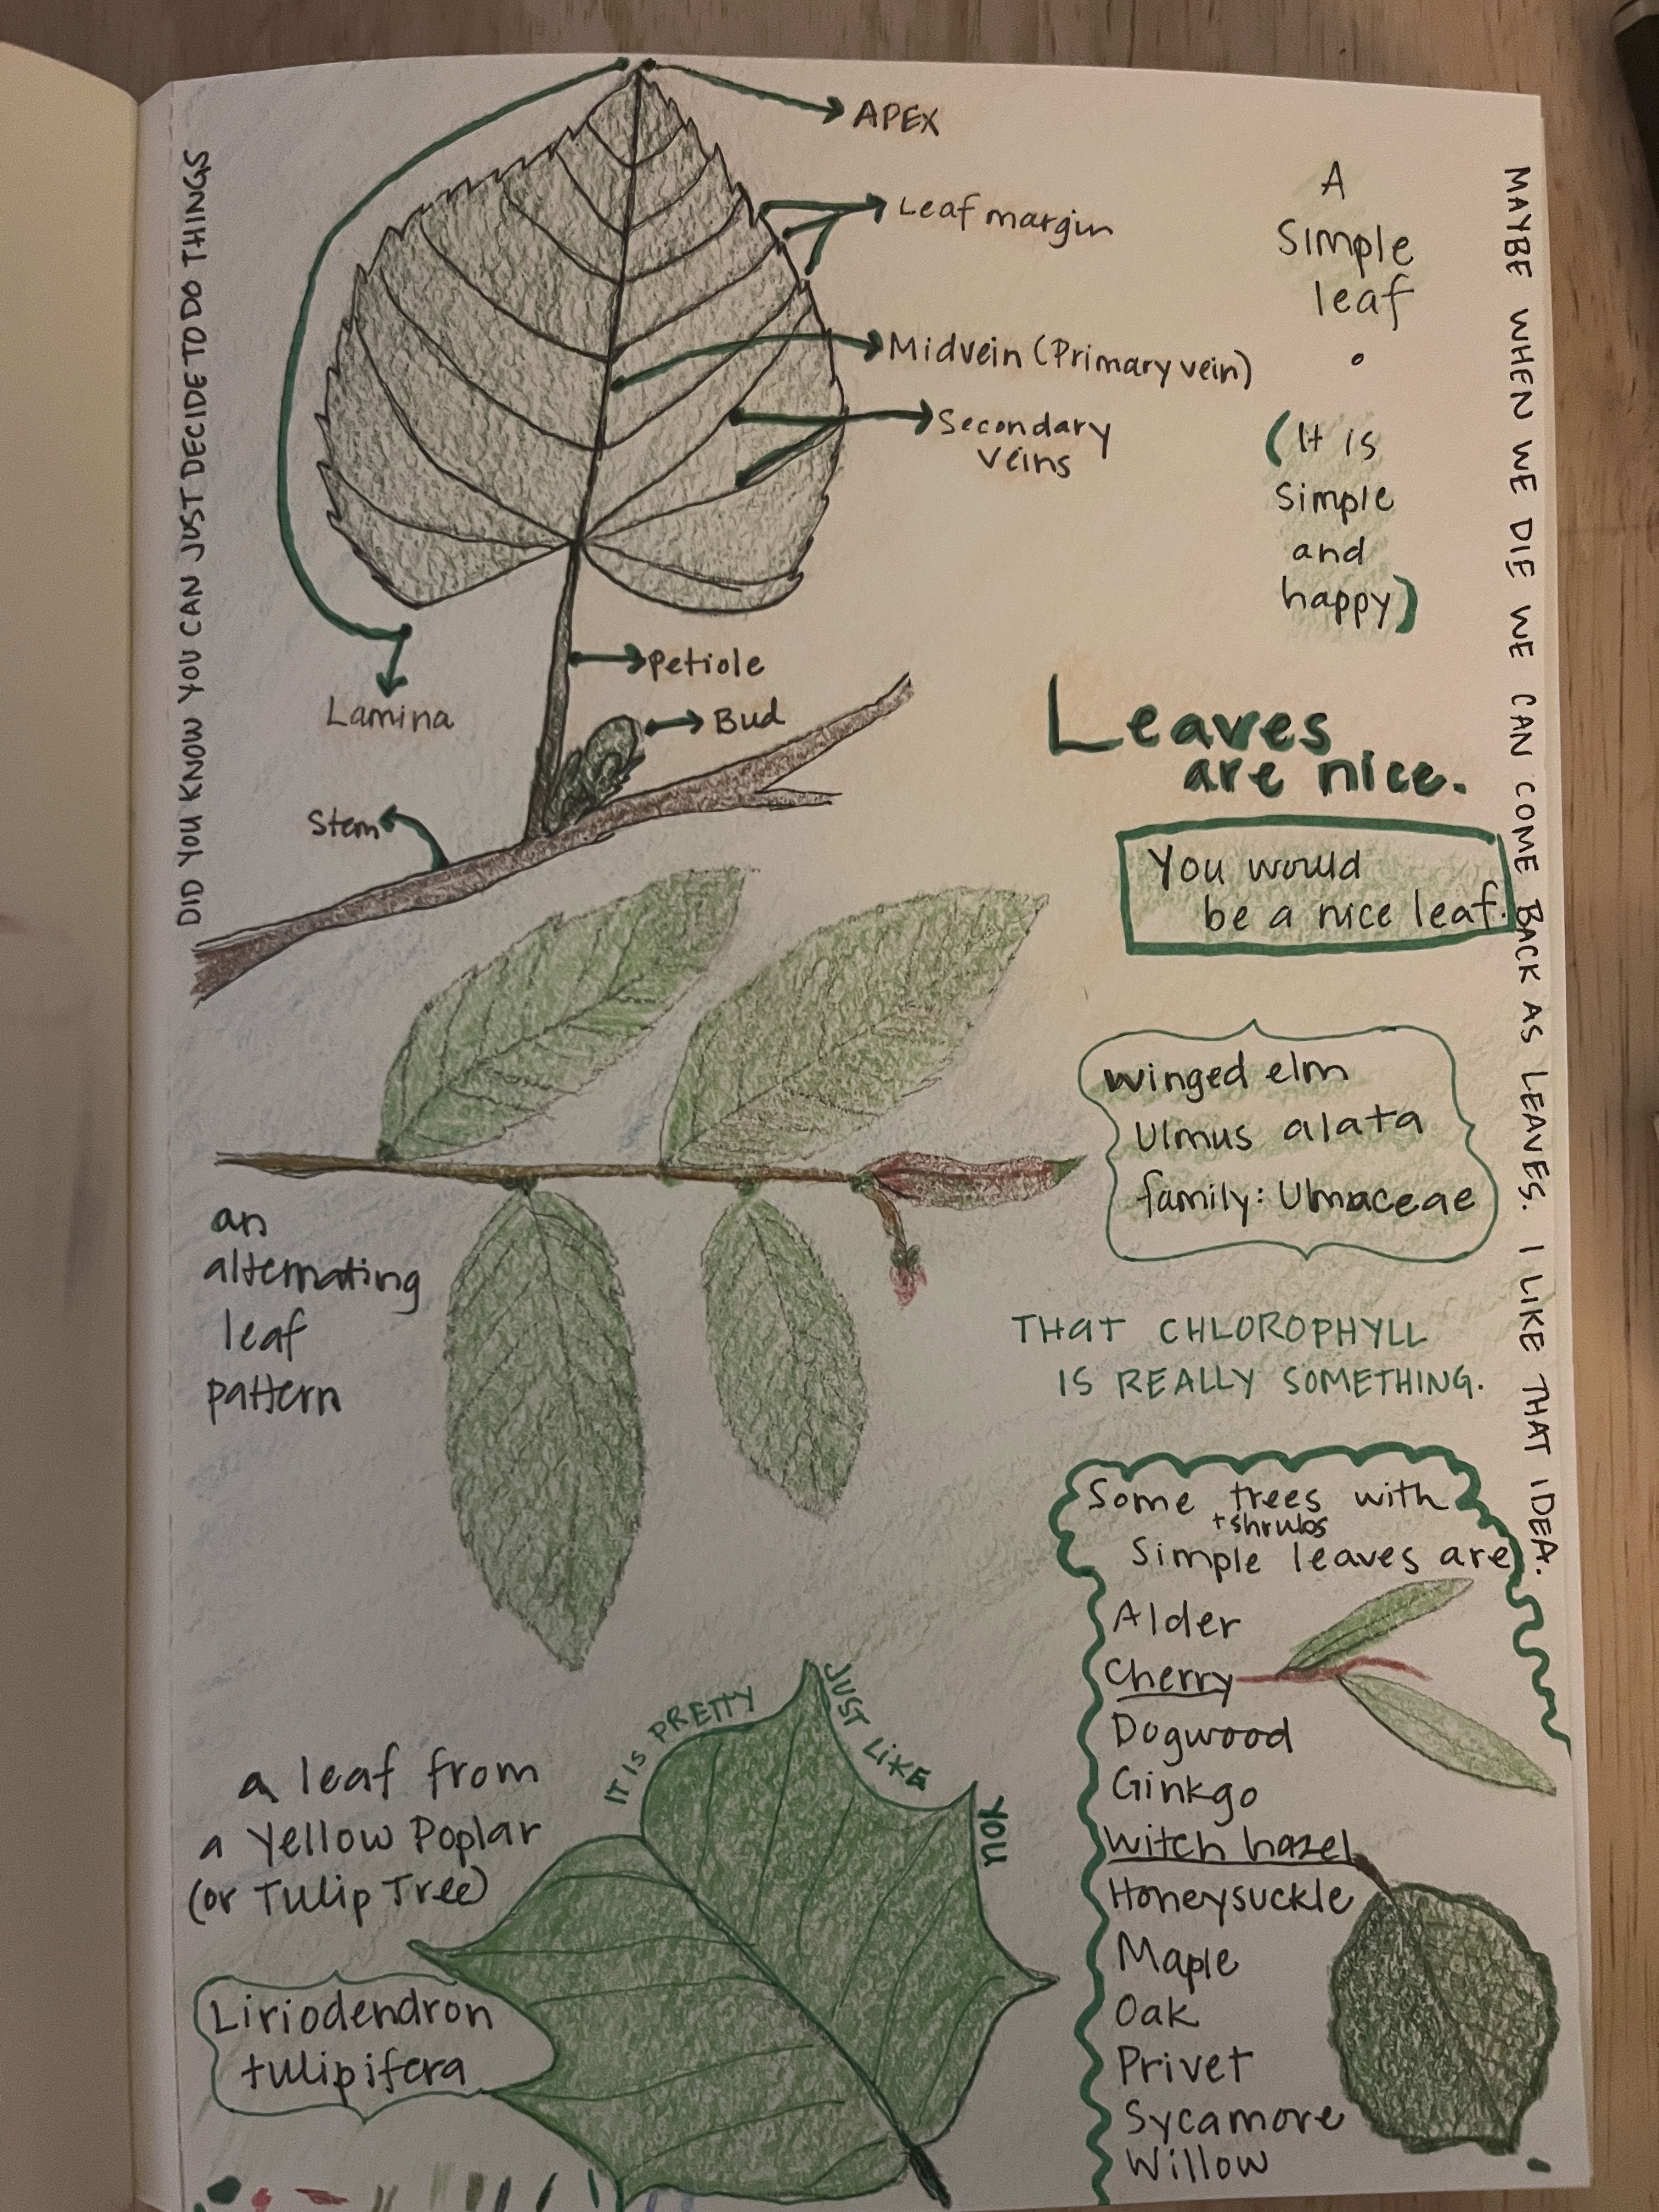 DID YOU KNOW YOU CAN JUST DECIDE TO DO THINGS
APEX
Leaf margin
Midvein (Primary vein)
Secondary
veins
Petiole
Bud
Lamina
Stem
A
Simple
leaf
(It is
simple
and
happy)
Leaves
are nice.
You would
be a nice leaf.
MAYBE WHEN WE DIE WE CAN COME BACK AS LEAVES. I LIKE THAT IDEA.
winged elm
Ulmus alata
family: Ulmaceae
an
alternating
leaf
pattern
THAT CHLOROPHYLL
IS REALLY SOMETHING.
Some trees with
+ shrubs
Simple leaves are
Alder
Cherry
Dogwood
Ginkgo
Witch hazel
Honeysuckle
Maple
Oak
Privet
Sycamore
Willow
a leaf from
a Yellow Poplar
(or Tulip Tree)
IT IS PRETTY JUST LIKE YOU
Liriodendron
tulipifera